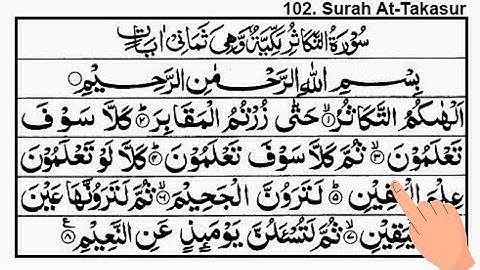 102. Surah At-Takasur
سُوْرَةُ التَّكَاثُرِ مَكِّيَّةٌ وَّهِيَ ثَمَانِيْ اٰيَاتٍ
بِسْمِ اللّٰهِ الرَّحْمٰنِ الرَّحِيْمِ ۝
اَلْهٰىكُمُ التَّكَاثُرُ ۝۱ حَتّٰى زُرْتُمُ الْمَقَابِرَ ۝۲ كَلَّا سَوْفَ
تَعْلَمُوْنَ ۝۳ ثُمَّ كَلَّا سَوْفَ تَعْلَمُوْنَ ۝۴ كَلَّا لَوْ تَعْلَمُوْنَ
عِلْمَ ۝۵ لَتَرَوُنَّ الْجَحِيْمَ ۝۶ ثُمَّ لَتَرَوُنَّهَا عَيْنَ
الْيَقِيْنِ ۝۷ ثُمَّ لَتُسْـَٔلُنَّ يَوْمَئِذٍ عَنِ النَّعِيْمِ ۝۸ ع